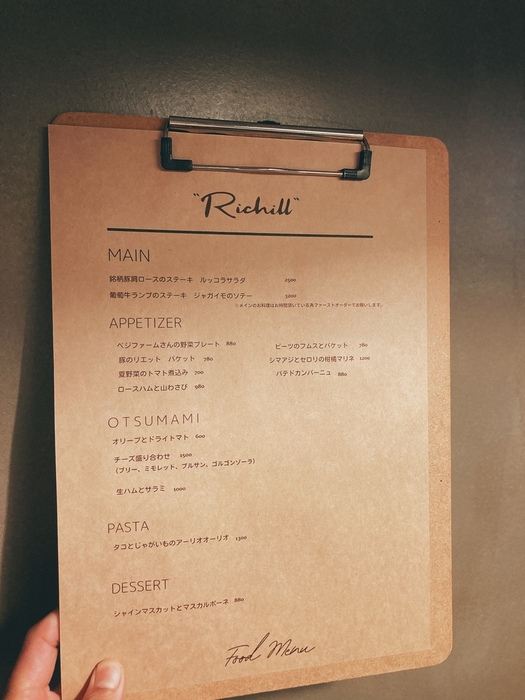 "Richill"
MAIN
銘柄豚肩ロースのステーキ ルッコラサラダ 2500
葡萄牛ランプのステーキ ジャガイモのソテー 3000
※メインのお料理はお時間頂いている為ファーストオーダーでお願いします。
APPETIZER
ベジファームさんの野菜プレート 880
豚のリエット バケット 780
夏野菜のトマト煮込み 700
ロースハムと山わさび 980
ビーツのフムスとバケット 780
シマアジとセロリの柑橘マリネ 1200
パテドカンパーニュ 880
OTSUMAMI
オリーブとドライトマト 600
チーズ盛り合わせ 1500
(ブリー、ミモレット、ブルサン、ゴルゴンゾーラ)
生ハムとサラミ 1000
PASTA
タコとじゃがいものアーリオオーリオ 1300
DESSERT
シャインマスカットとマスカルポーネ 880
Food Menu